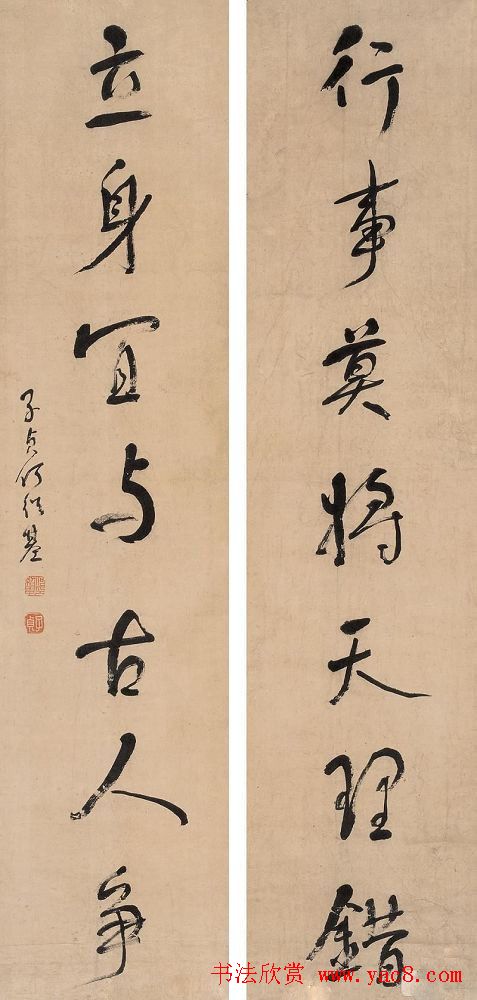 行事莫将天理錯
立身宜与古人争
子贞何绍基
书法欣赏 www.yac8.com